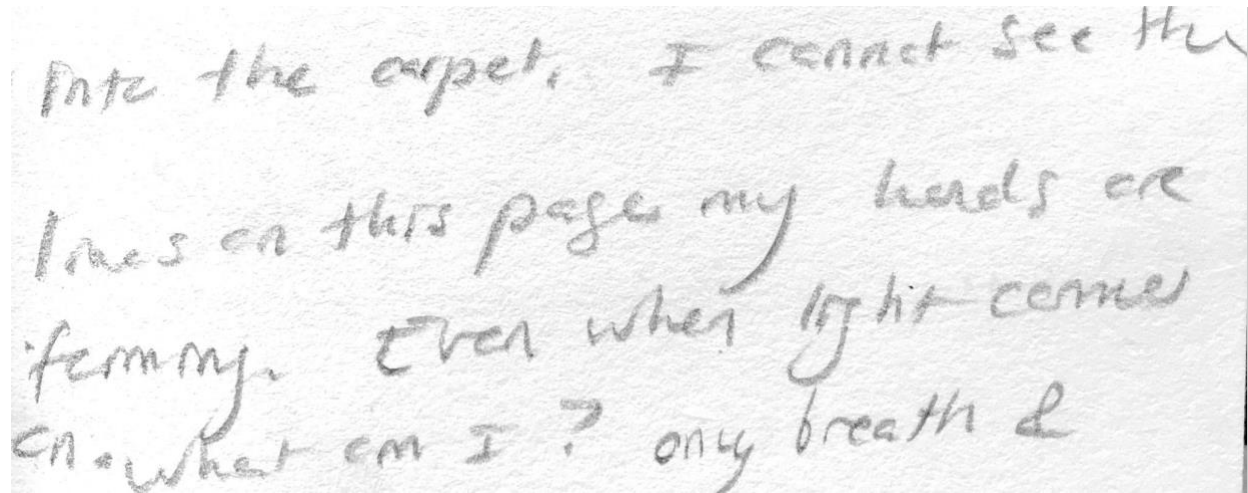 into the carpet. I cannot see the
lines on this page my hands are
forming. Even when light comes
on. what am I? only breath &